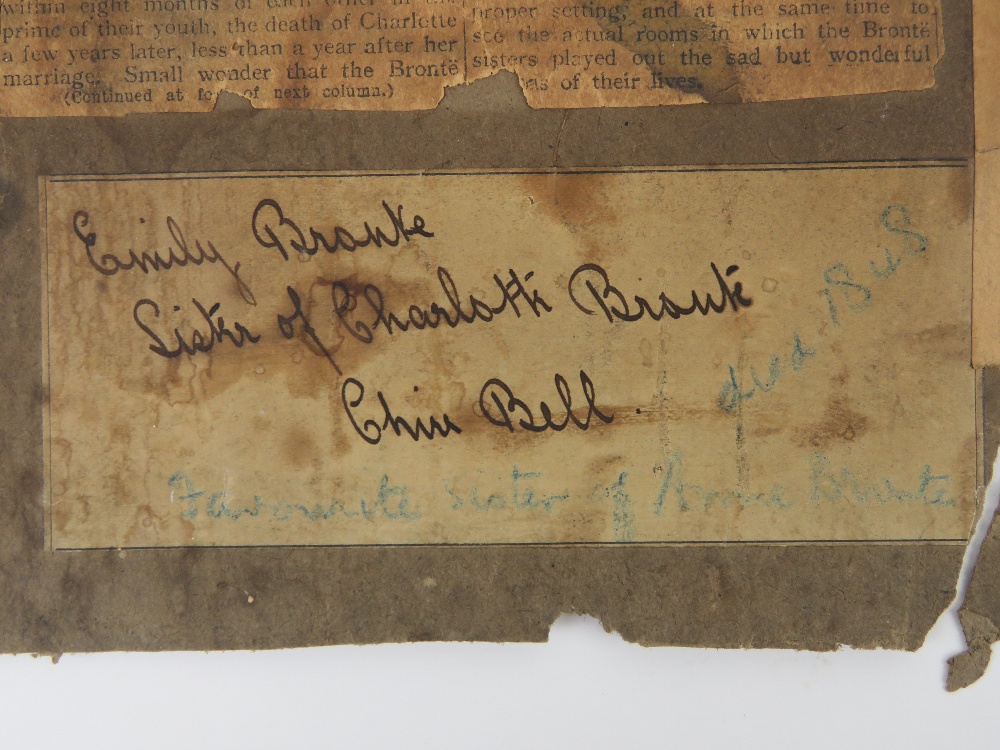 within eight months of each other in the
prime of their youth, the death of Charlotte
a few years later, less than a year after her
marriage. Small wonder that the Brontë
(Continued at foot of next column.)
proper setting, and at the same time to
see the actual rooms in which the Brontë
sisters played out the sad but wonderful
of their lives.
Emily Bronte
Sister of Charlotte Bronte
Bell.
died 1848
Favourite Sister of Anne Bronte